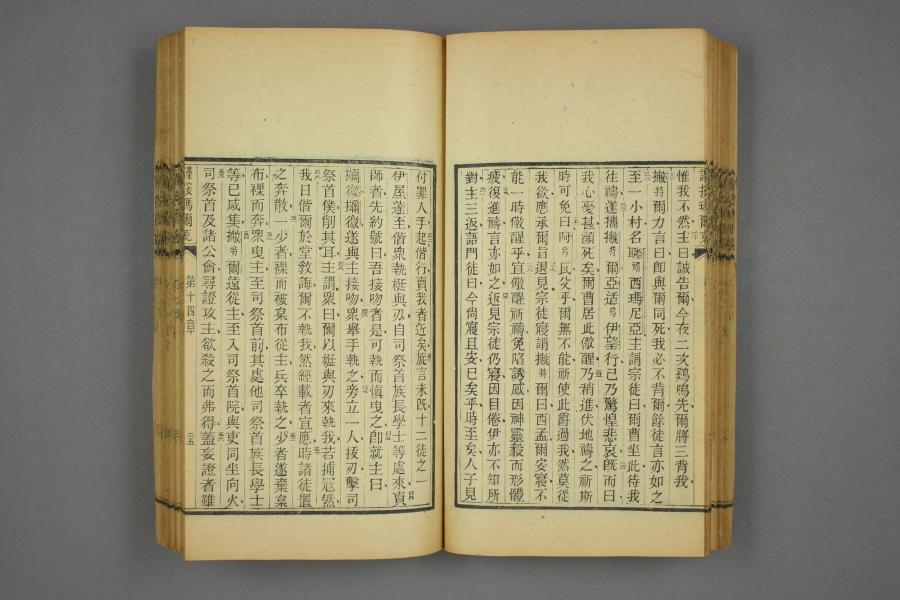 惟我不然主曰誠告爾今夜二次鷄鳴先爾將三背我
爾力言曰卽與爾同死我必不肯爾餘徒言亦如之
至一小村名西瑪尼亞主謂宗徒曰爾曹坐此待我
往禱遂攜爾亞適伊望行己乃驚惶悲哀旣而曰
我心憂甚瀕死矣爾曹居此儆醒乃稍進伏地禱之祈斯
時可免曰阿父乎爾無不能祈使此爵過我然莫從
我欲應承爾旨退見宗徒寢謂爾曰西孟爾安寢不
能一時儆醒乎宜儆醒祈禱免陷誘感因神靈毅而形體
疲復進禱言亦如之返見宗徒仍寢因目倦伊亦不知所
對主三返語門徒曰今尚寢且安已矣乎時至矣人子見
付罪人手起偕行賣我者近矣言未旣十二徒之一
伊屋達至偕衆執梃與刃自司祭首族長學士等處來賣
師者先約號曰吾接吻者是可執而愼曳之卽就主曰
遂與主接吻衆舉手執之旁立一人拔刃擊司
祭首僕削其耳主謂衆曰爾以梃與刃來執我若捕寇然
我日偕爾於堂敎誨爾不執我然經載者宜應時諸徒置
之奔散一少者裸而被枲布從主兵卒執之少者遂棄枲
布裸而奔衆曳主至司祭首前其處他司祭首族長學士
等已咸集爾遠從主至入司祭首院與吏同坐向火
司祭首及諸公會尋證攻主欲殺之而弗得蓋妄證者雖
瑪爾克
第十四章
二五